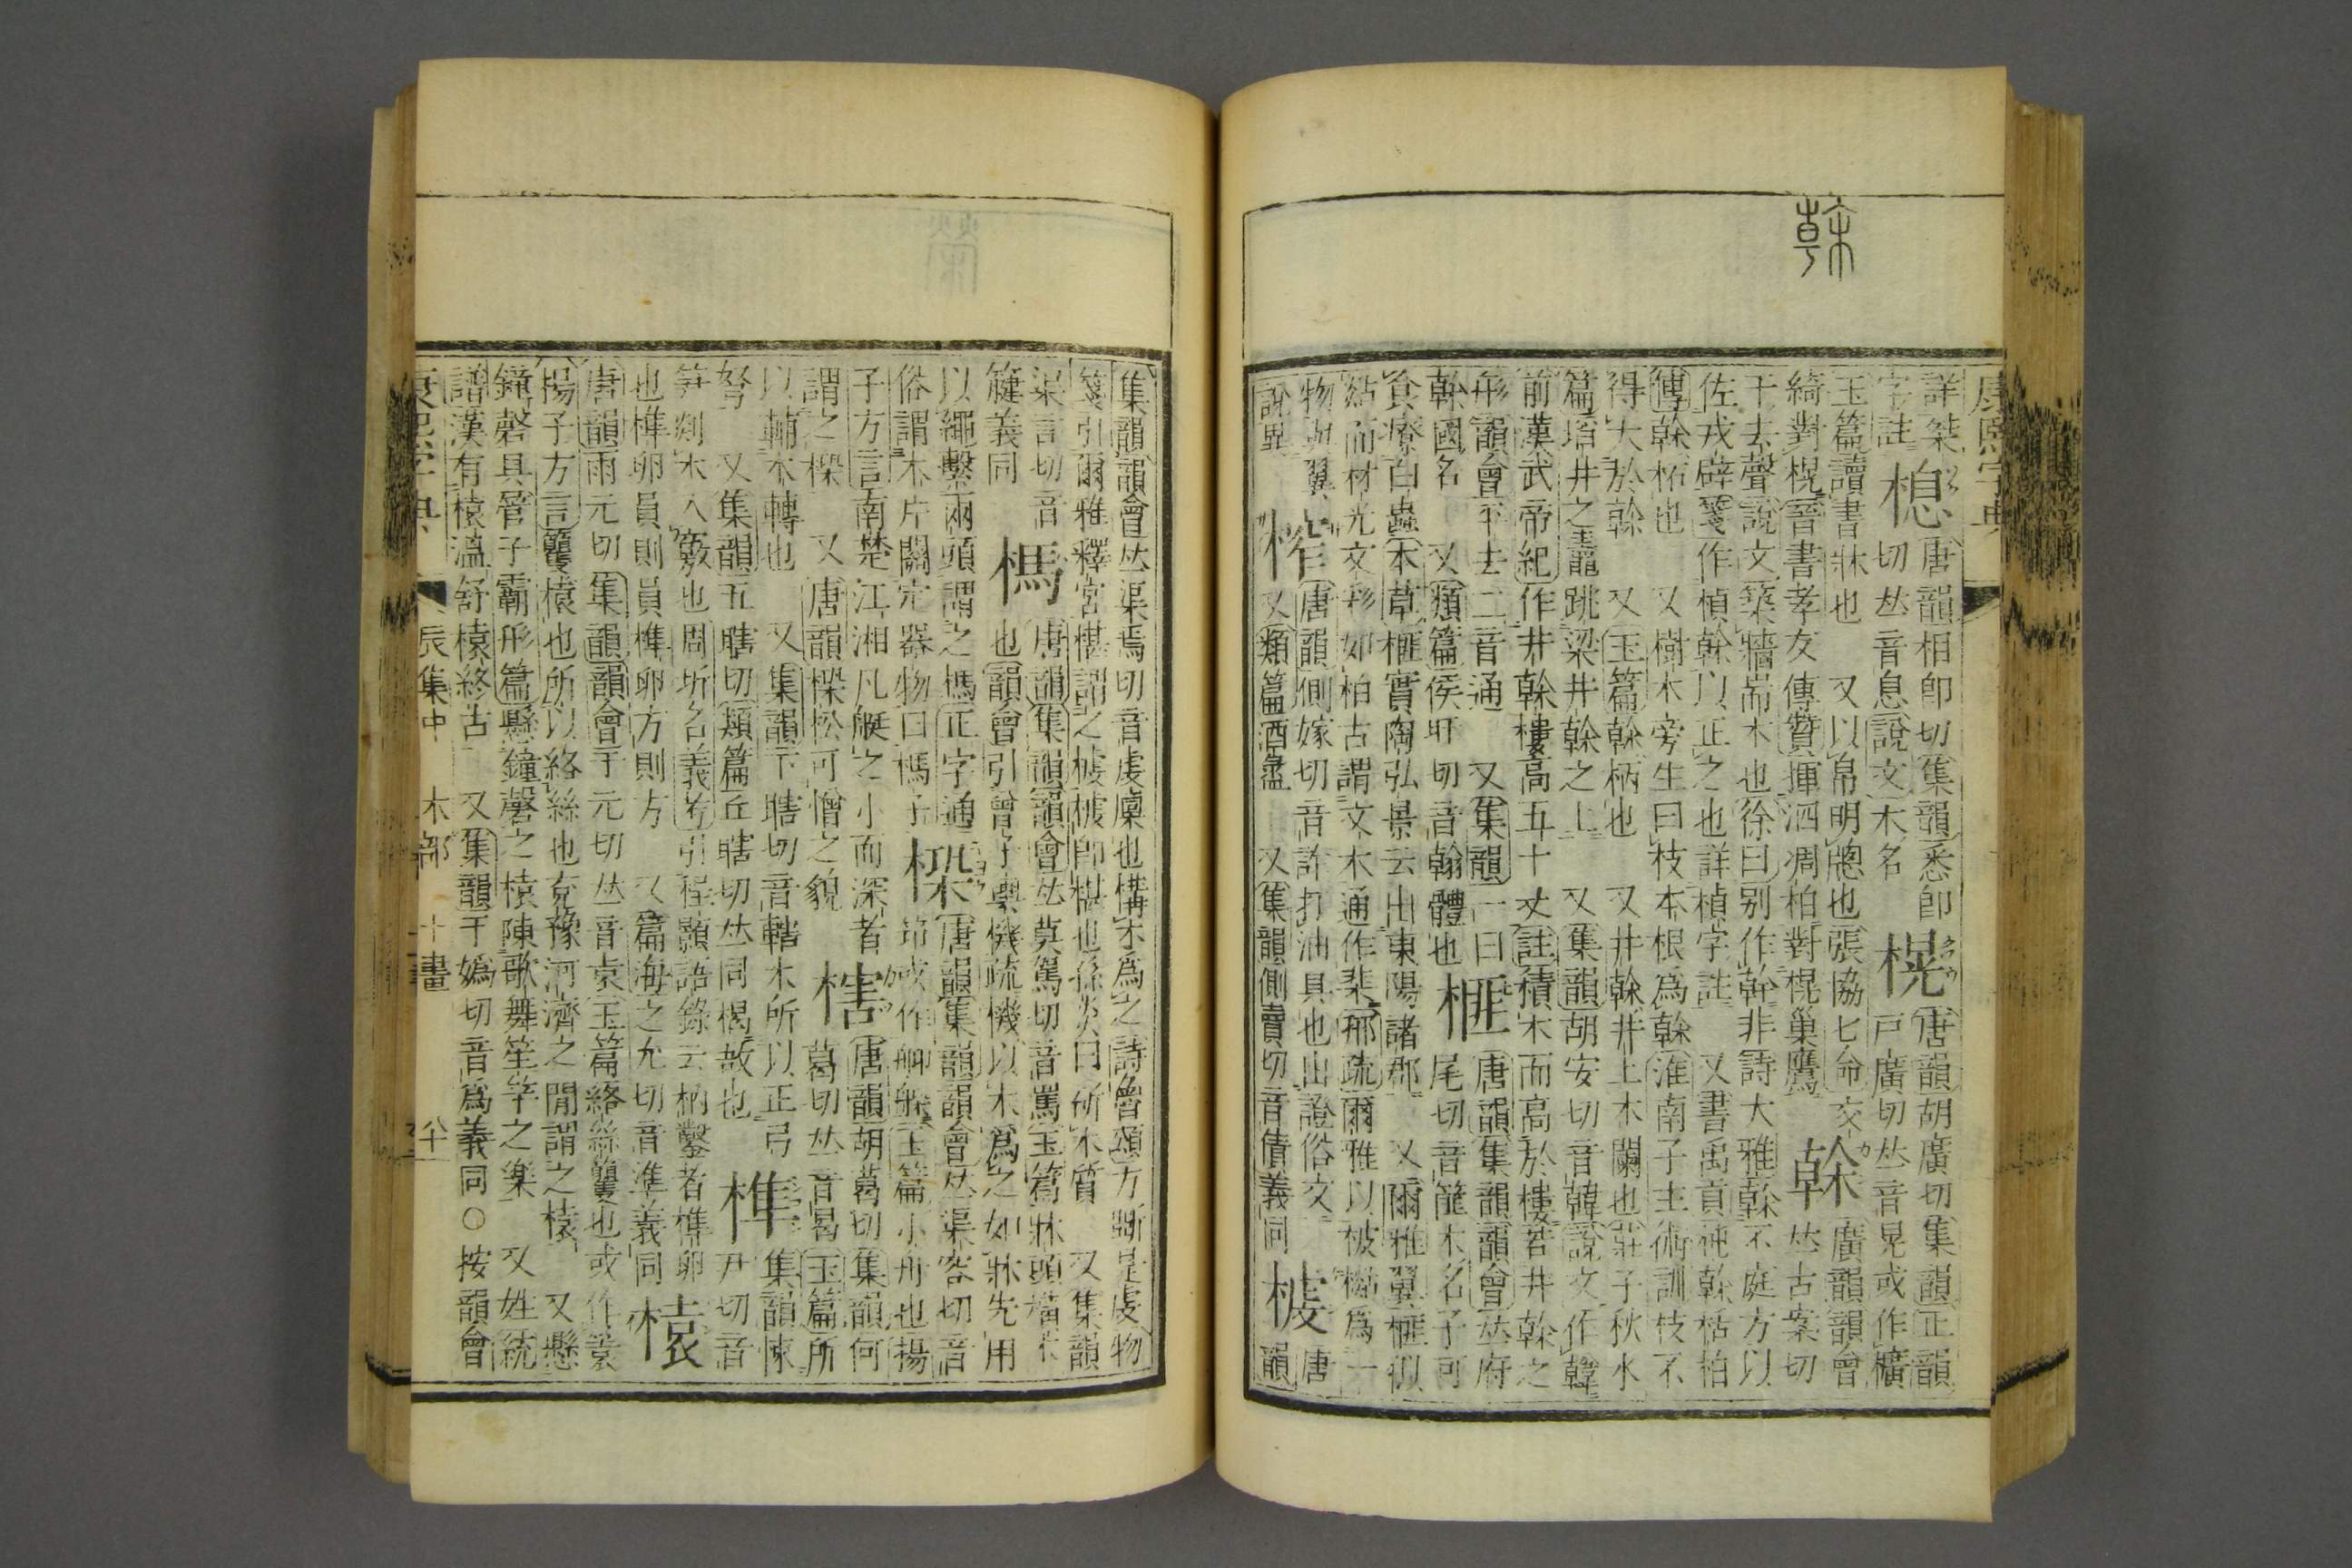 榦
康熙字典
詳桀 唐韻相卽切集韻悉卽 唐韻胡廣切集韻正韻
字註 楒 切𠀤音息說文木名 榥 戸廣切𠀤音晃或作櫎
玉篇讀書牀也 又以帛明牕也張協七命交 廣韻韻會
綺對榥晉書孝友傳贊揮泗凋柏對榥巢鷹 榦 𠀤古案切
干去聲說文築牆耑木也徐曰別作幹非詩大雅榦不庭方以
佐戎辟箋作楨榦以正之也詳楨字註 又書禹貢杶榦栝柏
傳榦柘也 又樹木旁生曰枝本根爲榦淮南子主術訓枝不
得大於榦 又玉篇榦柄也 又井榦井上木闌也莊子秋水
篇埳井之鼃跳梁井榦之上 又集韻胡安切音韓說文作韓
前漢武帝紀作井榦樓高五十丈註積木而高於樓若井榦之
形韻會平去二音通 又集韻一曰 唐韻集韻韻會𠀤府
榦國名 又類篇侯旰切音翰體也 榧 尾切音篚木名子可
食療白蟲本草榧實陶弘景云出東陽諸郡 又爾雅翼榧似
煔而材光文彩如柏古謂文木通作棐邢疏爾雅以柀㯕爲一
物與翼 唐韻側嫁切音詐打油具也出證俗文 唐
說異 榨 又類篇酒盝 又集韻側賣切音債義同 榩 韻
集韻韻會𠀤渠焉切音虔㯤也構木爲之詩魯頌方斲是虔物
箋引爾雅釋宮椹謂之榩榩卽椹也孫炎曰斫木質 又集韻
渠言切音 唐韻集韻韻會𠀤莫駕切音罵玉篇牀頭橫木
楗義同 榪 也韻會引曾子輿機疏機以木爲之如牀先用
以繩繫兩頭謂之榪正字通 唐韻集韻韻會𠀤渠容切音
俗謂木片關定器物曰榪子 㮪 筇或作𦨰𦪇玉篇小舟也揚
子方言南楚江湘凡艇之小而深者 唐韻胡葛切集韻何
謂之㮪 又唐韻㮪松可憎之貌 㮫 葛切𠀤音曷玉篇所
以輔木轉也 又集韻下瞎切音轄木所以正弓 集韻悚
弩 又集韻五瞎切類篇丘瞎切𠀤同楬敔也 榫 尹切音
筍剡木入竅也周圻名義考引程顥語錄云枘鑿者榫卯
也榫卯員則員榫卯方則方 又篇海之允切音準義同 榬
唐韻雨元切集韻韻會于元切𠀤音袁玉篇絡絲籰也或作䈠
揚子方言籰榬也所以絡絲也兗豫河濟之閒謂之榬 又懸
鐘磬具管子霸形篇懸鐘磬之榬陳歌舞笙竽之樂 又姓統
譜漢有榬溫舒榬終古 又集韻于嬀切音爲義同○按韻會
康熙字典 辰集中 木部 十畫